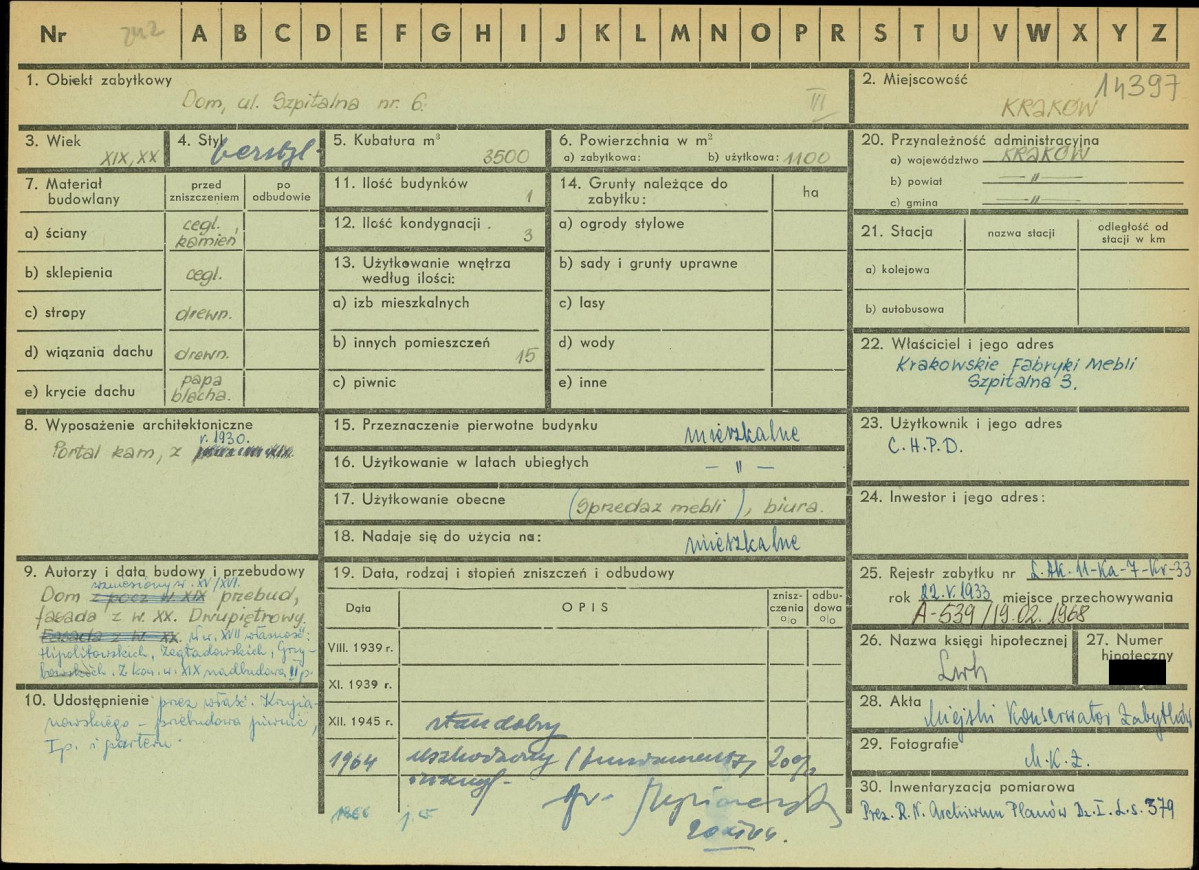 Nr A B C D E F G H I J K L M N O P R S T U V W X Y Z
1. Obiekt zabytkowy
Dom, ul. Szpitalna nr. 6.
VI
2. Miejscowość
14397
KRAKÓW
3. Wiek
XIX, XX
4. Styl
5. Kubatura m³
3500
6. Powierzchnia w m²
a) zabytkowa: b) użytkowa: 1100
20. Przynależność administracyjna
a) województwo KRAKÓW
b) powiat — " —
c) gmina — " —
7. Materiał budowlany
przed zniszczeniem
po odbudowie
a) ściany cegl. kamień
b) sklepienia cegl.
c) stropy drewn.
d) wiązania dachu drewn.
e) krycie dachu papa blacha.
11. Ilość budynków 1
12. Ilość kondygnacji . 3
13. Użytkowanie wnętrza według ilości:
a) izb mieszkalnych
b) innych pomieszczeń 15
c) piwnic
14. Grunty należące do zabytku:
ha
a) ogrody stylowe
b) sady i grunty uprawne
c) lasy
d) wody
e) inne
21. Stacja
nazwa stacji
odległość od stacji w km
a) kolejowa
b) autobusowa
22. Właściciel i jego adres
Krakowskie Fabryki Mebli
Szpitalna 3.
8. Wyposażenie architektoniczne
r. 1930.
Portal kam, z
15. Przeznaczenie pierwotne budynku mieszkalne
16. Użytkowanie w latach ubiegłych — " —
17. Użytkowanie obecne (Sprzedaż mebli), biura.
18. Nadaje się do użycia na: mieszkalne
23. Użytkownik i jego adres
C.H.P.D.
24. Inwestor i jego adres:
9. Autorzy i data budowy i przebudowy
wzniesiony w. XV/XVI.
Dom z pocz w. XIX przebud,
fasada z w. XX. Dwupiętrowy.
Fasada z w. XX. W w. XVII własność:
Hipolitowskich, Zegtadowskich, Grzy-
bowskich. Z kon. w. XIX nadbudowa II p.
10. Udostępnienie przez właśc. Krzyża-
nowskiego – przebudowa piwnic,
I p. i parteru.
19. Data, rodzaj i stopień zniszczeń i odbudowy
Data
OPIS
zniszczenia o/o
odbudowa o/o
VIII. 1939 r.
XI. 1939 r.
XII. 1945 r. stan dobry
1964 uszkodzony (fundamenty, 20%
25. Rejestr zabytku nr L.AK.11-Ka-7-Kr-33
rok 22.V.1933 miejsce przechowywania
A-539/19.02.1968
26. Nazwa księgi hipotecznej
Lwh
27. Numer hipoteczny
28. Akta
Miejski Konserwator Zabytków
29. Fotografie
M.K.Z.
30. Inwentaryzacja pomiarowa
Prez. R.N. Archiwum Planów Dz. I. L.s. 379